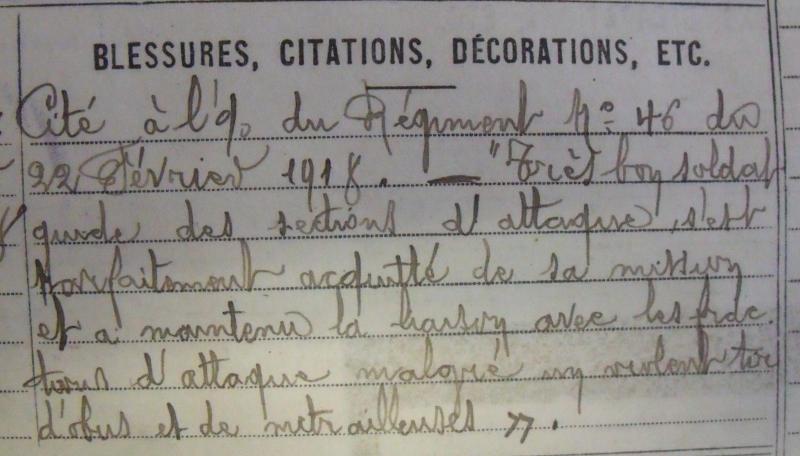 BLESSURES, CITATIONS, DÉCORATIONS, ETC.
Cité à l'o. du Régiment No 46 du
22 Février 1918. — "Très bon soldat
guide des sections d'attaque, s'est
parfaitement acquitté de sa mission
et a maintenu la liaison avec les frac
tions d'attaque malgré un violent tir
d'obus et de mitrailleuses ».